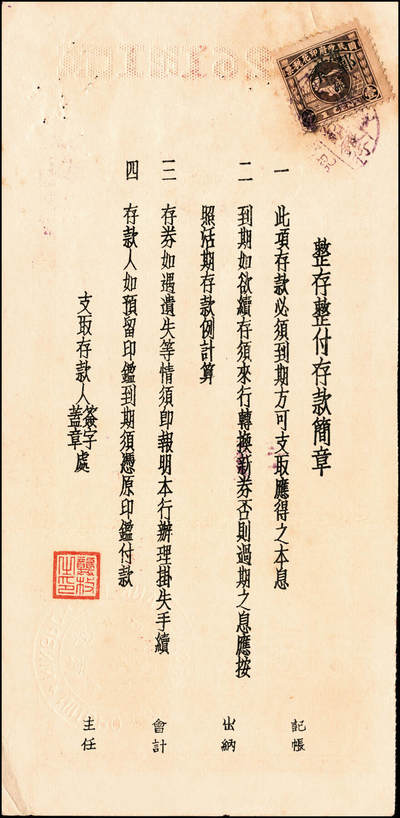 整存整付存款簡章
一 此項存款必須到期方可支取應得之本息
二 到期如欲續存須來行轉換新券否則過期之息應按
照活期存款例計算
三 存券如遇遺失等情須即報明本行辦理掛失手續
四 存款人如預留印鑑到期須憑原印鑑付款
支取存款人簽字蓋章處
記帳
出納
會計
主任